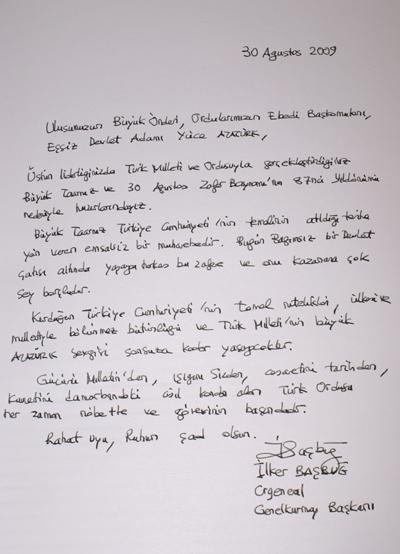 30 Ağustos 2009
Ulusumuzun Büyük Önderi, Ordularımızın Ebedi Başkomutanı,
Eşsiz Devlet Adamı Yüce ATATÜRK,
Üstün liderliğinizde Türk Milleti ve Ordusuyla gerçekleştirdiğiniz
Büyük Taarruz ve 30 Ağustos Zafer Bayramı'nın 87nci Yıldönümü
nedeniyle huzurlarındayız.
Büyük Taarruz Türkiye Cumhuriyeti'nin temellerinin atıldığı tarihe
yön veren emsalsiz bir muharebedir. Bugün Bağımsız bir Devlet
Çatısı altında yaşayan herkes bu zafere ve onu kazanana çok
şey borçludur.
Kurduğun Türkiye Cumhuriyeti'nin temel nitelikleri, ülkesi ve
milletiyle bölünmez bütünlüğü ve Türk Milleti'nin büyük
ATATÜRK sevgisi sonsuza kadar yaşayacaktır.
Gücünü Milletin'den, Işığını Sizden, cesaretini tarihinden,
Kuvvetini damarlarındaki asil kandan alan Türk Ordusu
her zaman nöbette ve görevinin başındadır.
Rahat uyu, Ruhun şad olsun.
İBaşbuğ
İlker BAŞBUĞ
Orgeneral
Genelkurmay Başkanı